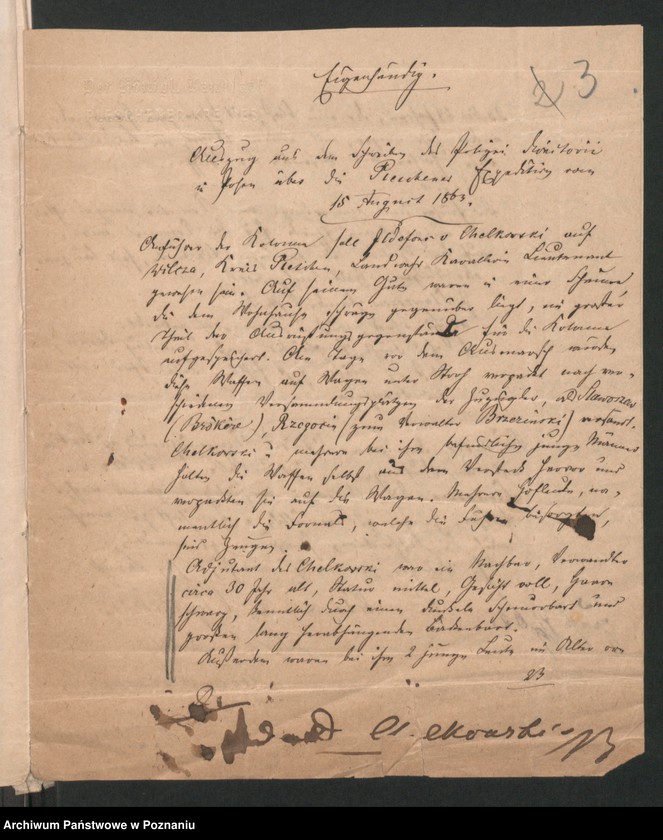 Eigenhändig.
2 3
Auszug aus dem Schreiben des Polizei Direktorii
in Posen über die Pleschener Expedition vom
15 August 1863.
Anführer der Kolonne soll Ildefons v Chelkowski auf
Wilcza, Kreis Pleschen, Landwehr Kavallerie Lieutenant
gewesen sein. Auf seinem Gute waren in einer Scheune
die dem Wohnhause schräge gegenüber liegt, ein großer
Theil der Ausrüstungsgegenstände für die Kolonne
aufgespeichert. Am Tage vor dem Ausmarsch wurden
diese Waffen auf Wagen unter Stroh verpackt nach ver-
schiedenen Versammlungsplätzen der Zuzügler, als
(), Rzegocin (zum Verwalter Brzezinski) versandt.
Chelkowski u mehrere bei ihm befindliche junge Männer
holten die Waffen selbst aus dem Versteck hervor und
verpackten sie auf die Wagen. Mehrere Hofleute, na-
mentlich die Fornals, welche die Fuhren
sind Zeugen.
Adjutant des Chelkowski war ein Nachbar, Verwandter
circa 30 Jahr alt, Statur mittel, Gesicht voll, Haare
schwarz, kenntlich durch einen dunkeln Schnurrbart und
großen lang herabhängenden Backenbart.
Außerdem waren bei ihm 2 junge Leute im Alter von
23